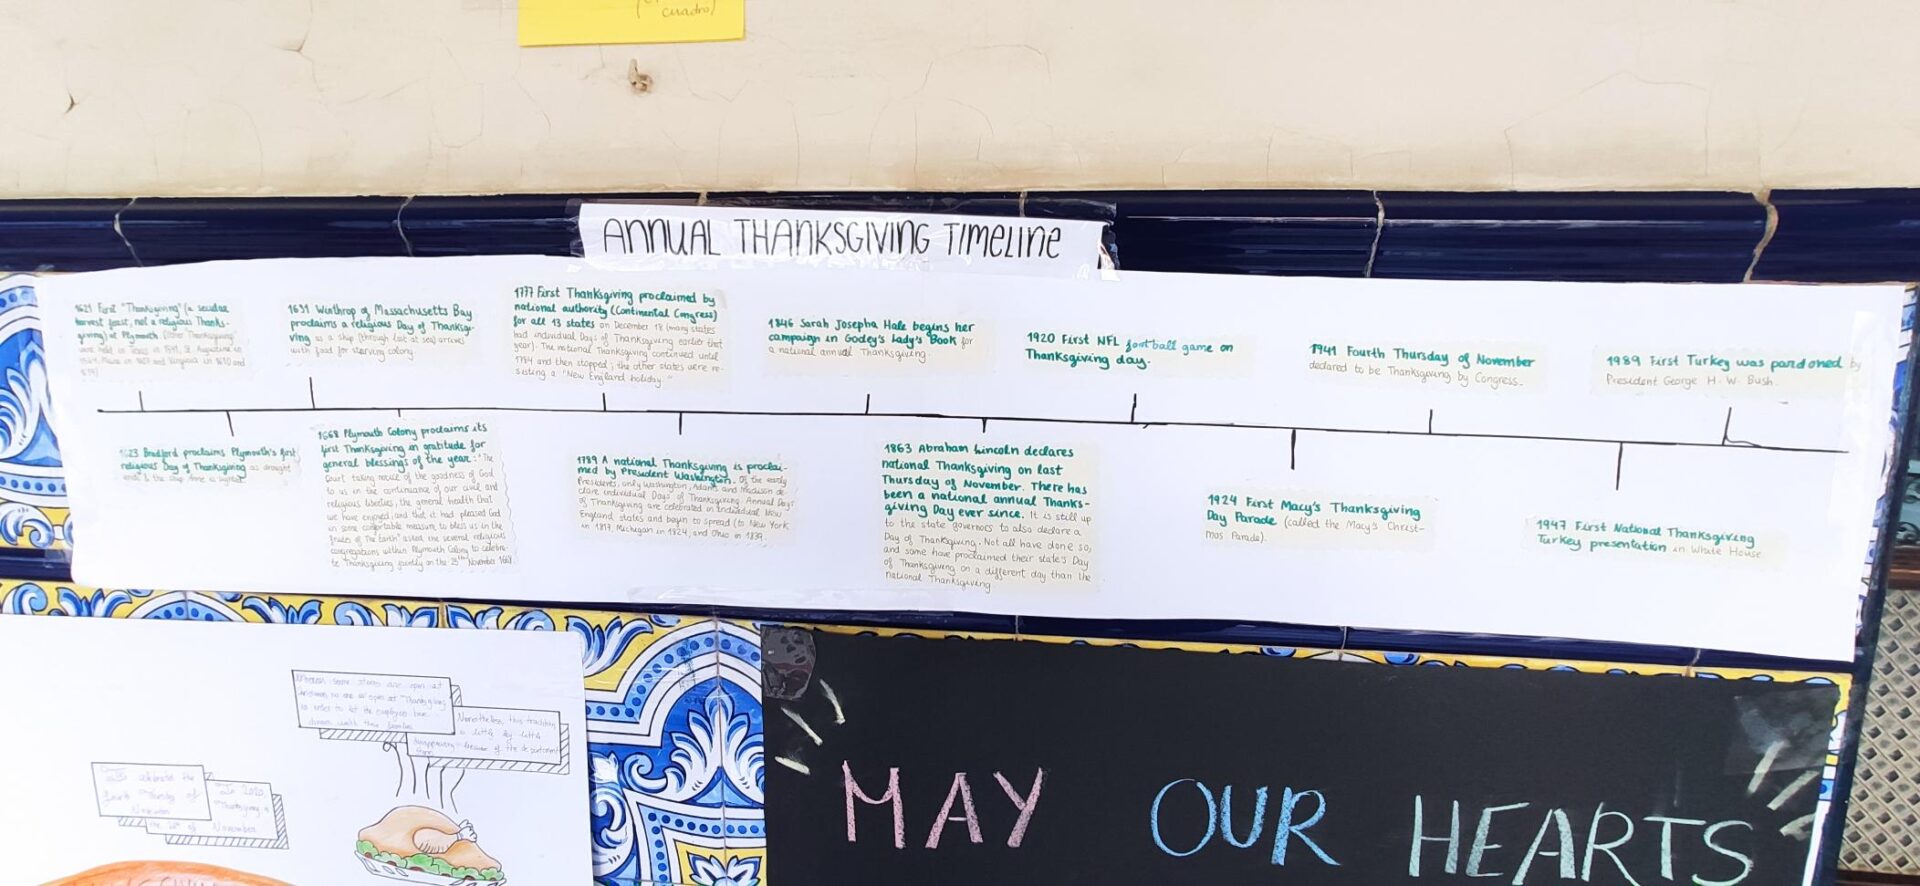 cuadro)
ANNUAL THANKSGIVING TIMELINE
1621 First "Thanksgiving" (a secular
harvest feast, not a religious Thanks-
giving) at Plymouth. (Other Thanksgivings
were held in Texas in 1541, St. Augustine in
1564, Maine in 1607 and Virginia in 1610 and
1619)
1631 Winthrop of Massachusetts Bay
proclaims a religious Day of Thanksgi-
ving as a ship (through lost at sea) arrives
with food for starving colony.
1777 First Thanksgiving proclaimed by
national authority (Continental Congress)
for all 13 states on December 18 (many states
had individual Days of Thanksgiving earlier that
year). The national Thanksgiving continued until
1784 and then stopped; the other states were re-
sisting a "New England holiday."
1846 Sarah Josepha Hale begins her
campaign in Godey's Lady's Book for
a national annual Thanksgiving.
1920 First NFL football game on
Thanksgiving day.
1941 Fourth Thursday of November
declared to be Thanksgiving by Congress.
1989 First Turkey was pardoned by
President George H. W. Bush.
1623 Bradford proclaims Plymouth's first
religious Day of Thanksgiving as drought
ends & the ship Anne is sighted
1668 Plymouth Colony proclaims its
first Thanksgiving in gratitude for
general blessings of the year: "The
Court taking notice of the goodness of God
to us in the continuance of our civil and
religious liberties, the general health that
we have enjoyed, and that it had pleased God
in some comfortable measure to bless us in the
fruites of The Earth" asked the several religious
congregations within Plymouth Colony to celebra-
te Thanksgiving jointly on the 25th November 1668.
1789 A national Thanksgiving is proclai-
med by President Washington. Of the early
Presidents, only Washington, Adams and Madison de-
clare individual Days of Thanksgiving. Annual Days
of Thanksgiving are celebrated in individual New
England states and begin to spread (to New York
in 1817, Michigan in 1824, and Ohio in 1839.
1863 Abraham Lincoln declares
national Thanksgiving on last
Thursday of November. There has
been a national annual Thanks-
giving Day ever since. It is still up
to the state governors to also declare a
Day of Thanksgiving. Not all have done so,
and some have proclaimed their state's Day
of Thanksgiving on a different day than the
national Thanksgiving
1924 First Macy's Thanksgiving
Day Parade (called the Macy's Christ-
mas Parade).
1947 First National Thanksgiving
Turkey presentation in White House
some stores are open at
Christmas no one is open at Thanksgiving
in order to let the employees have
dinner with their families
Nonetheless, this tradition
is little by little
disappearing because of the department
celebrate the
fourth Thursday of
November
In 2020,
Thanksgiving is
the 26th of November
MAY OUR HEARTS